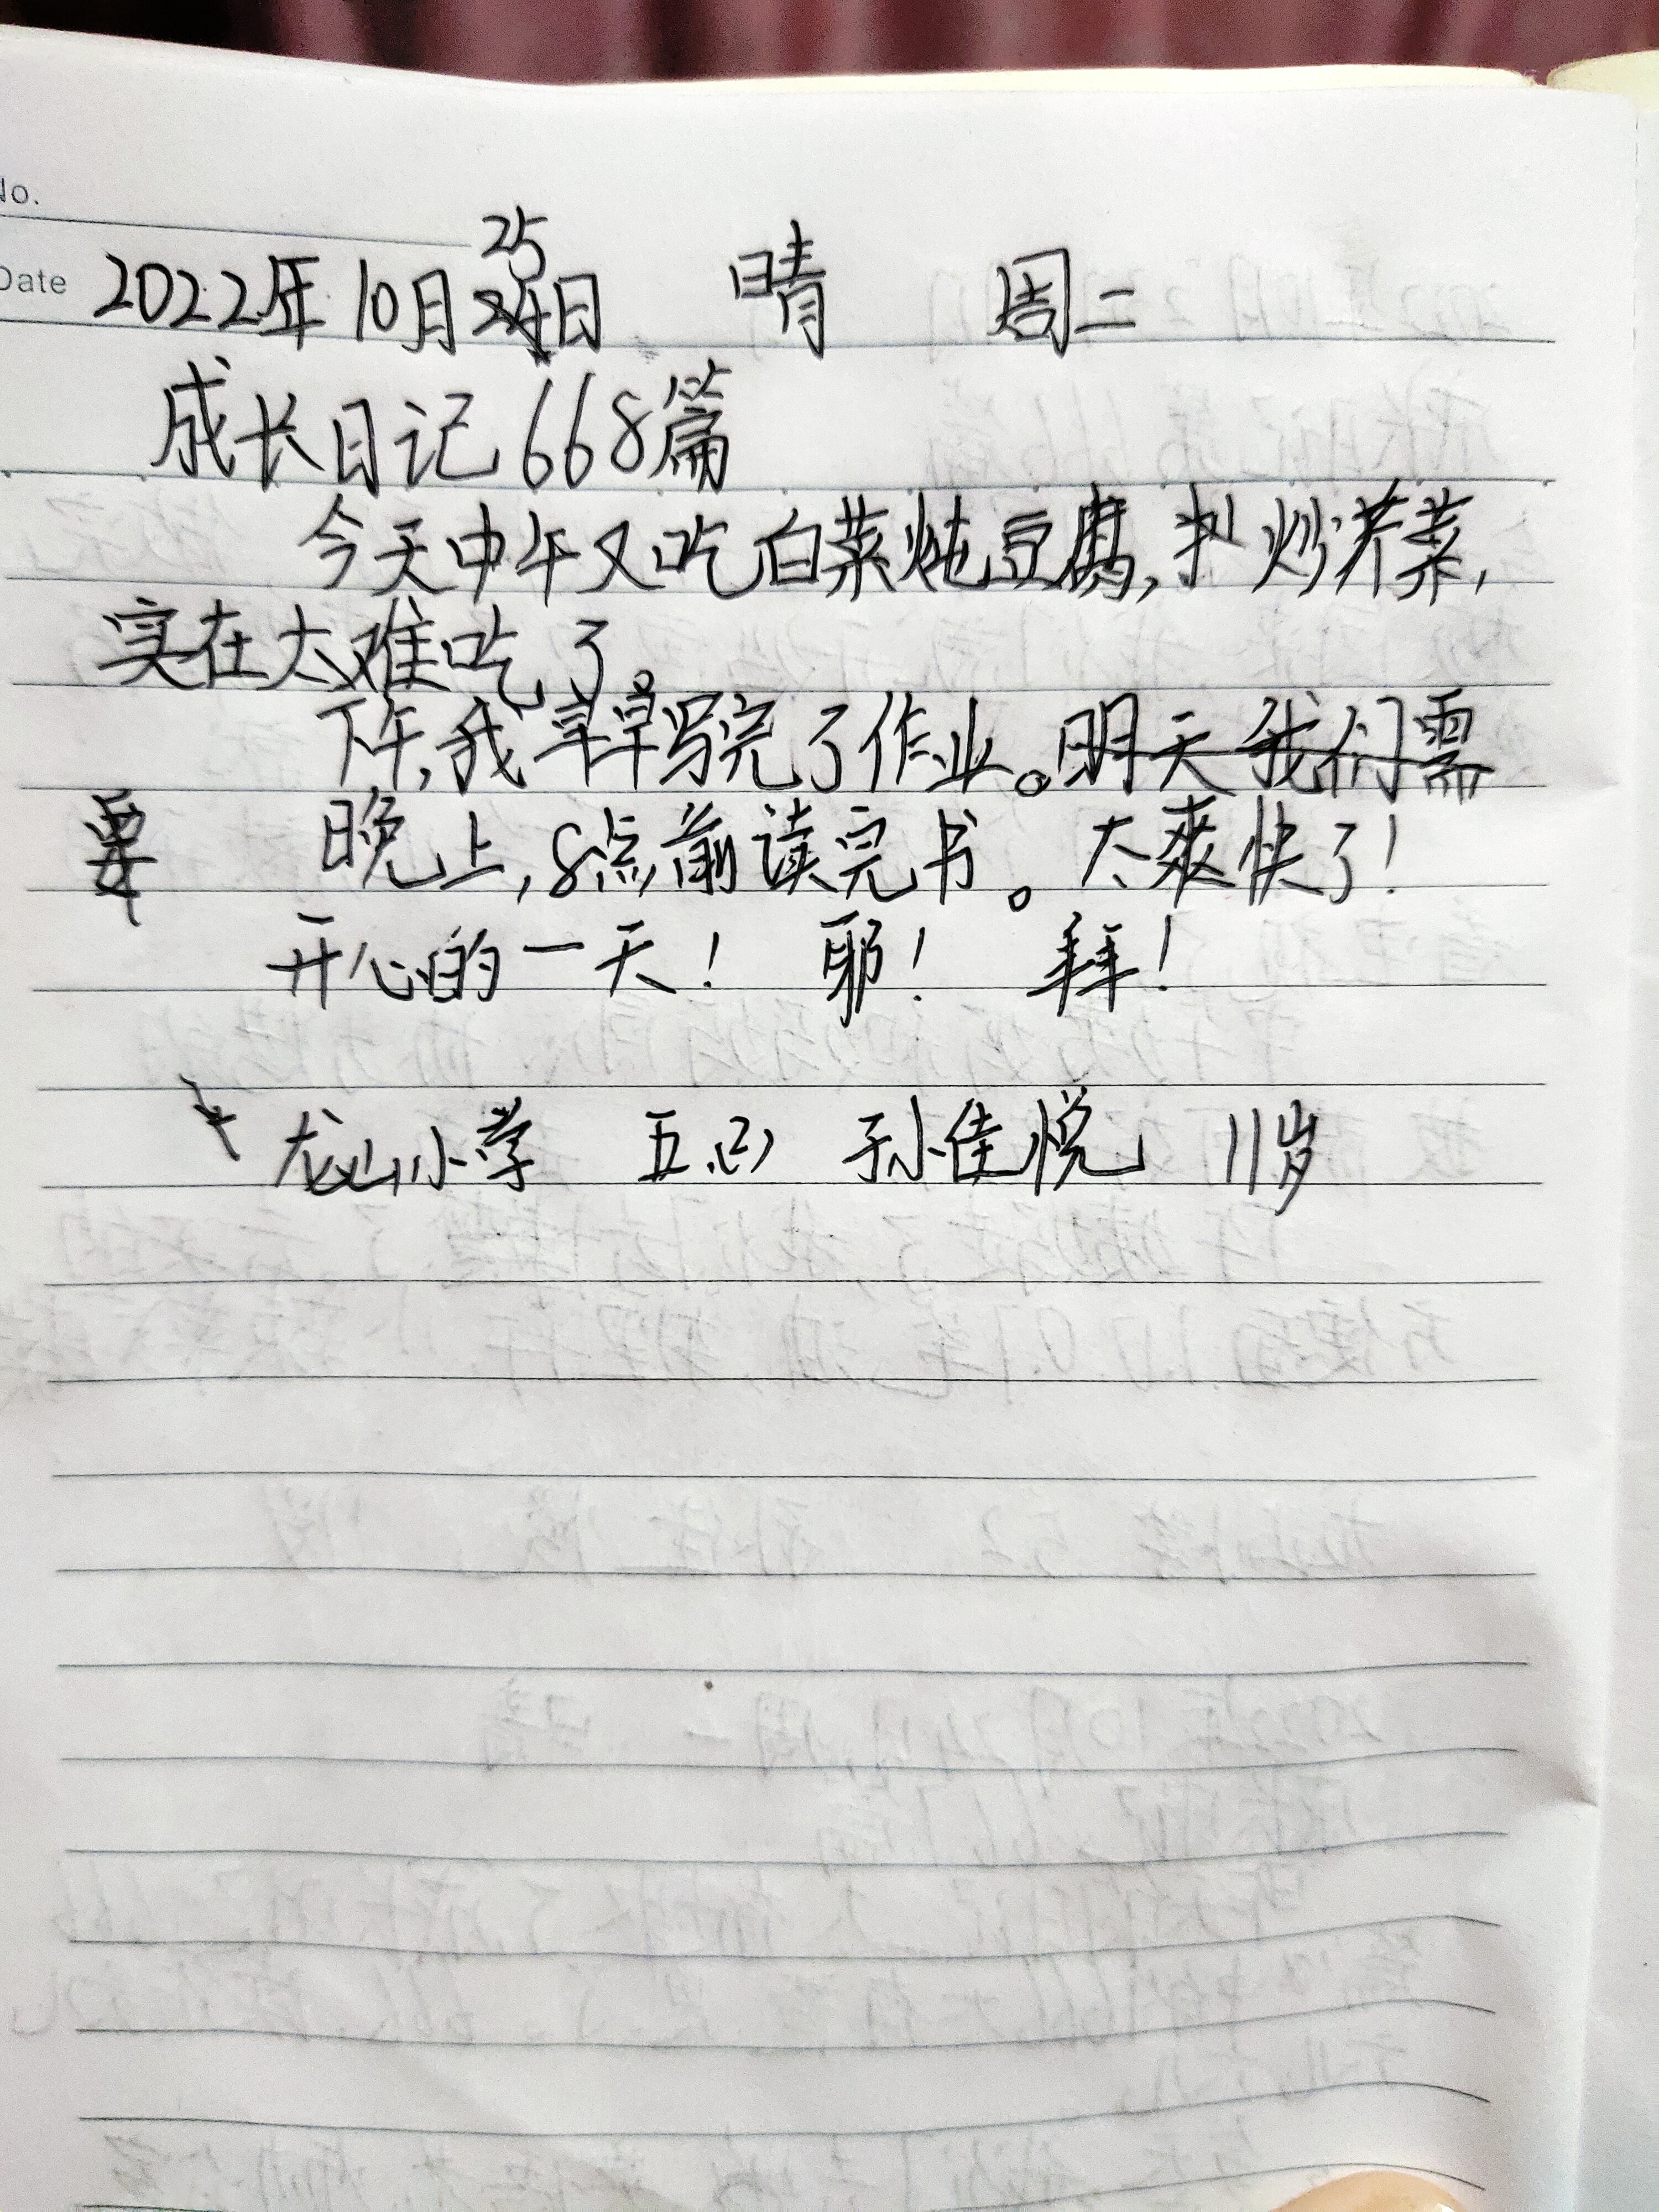 No.
Date 2022年10月25日 晴 周二
成长日记668篇
今天中午又吃白菜炖豆腐,炒芹菜,
实在太难吃了。
下午,我早早写完了作业。明天我们需
要 晚上,8点前读完书。太爽快了!
开心的一天! 耶! 拜!
龙山小学 五(2) 孙佳悦 11岁